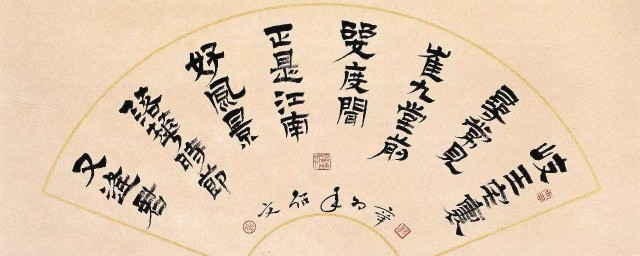 岐王宅裏
尋常見
崔九堂前
幾度聞
正是江南
好風景
落華時節
又逢君